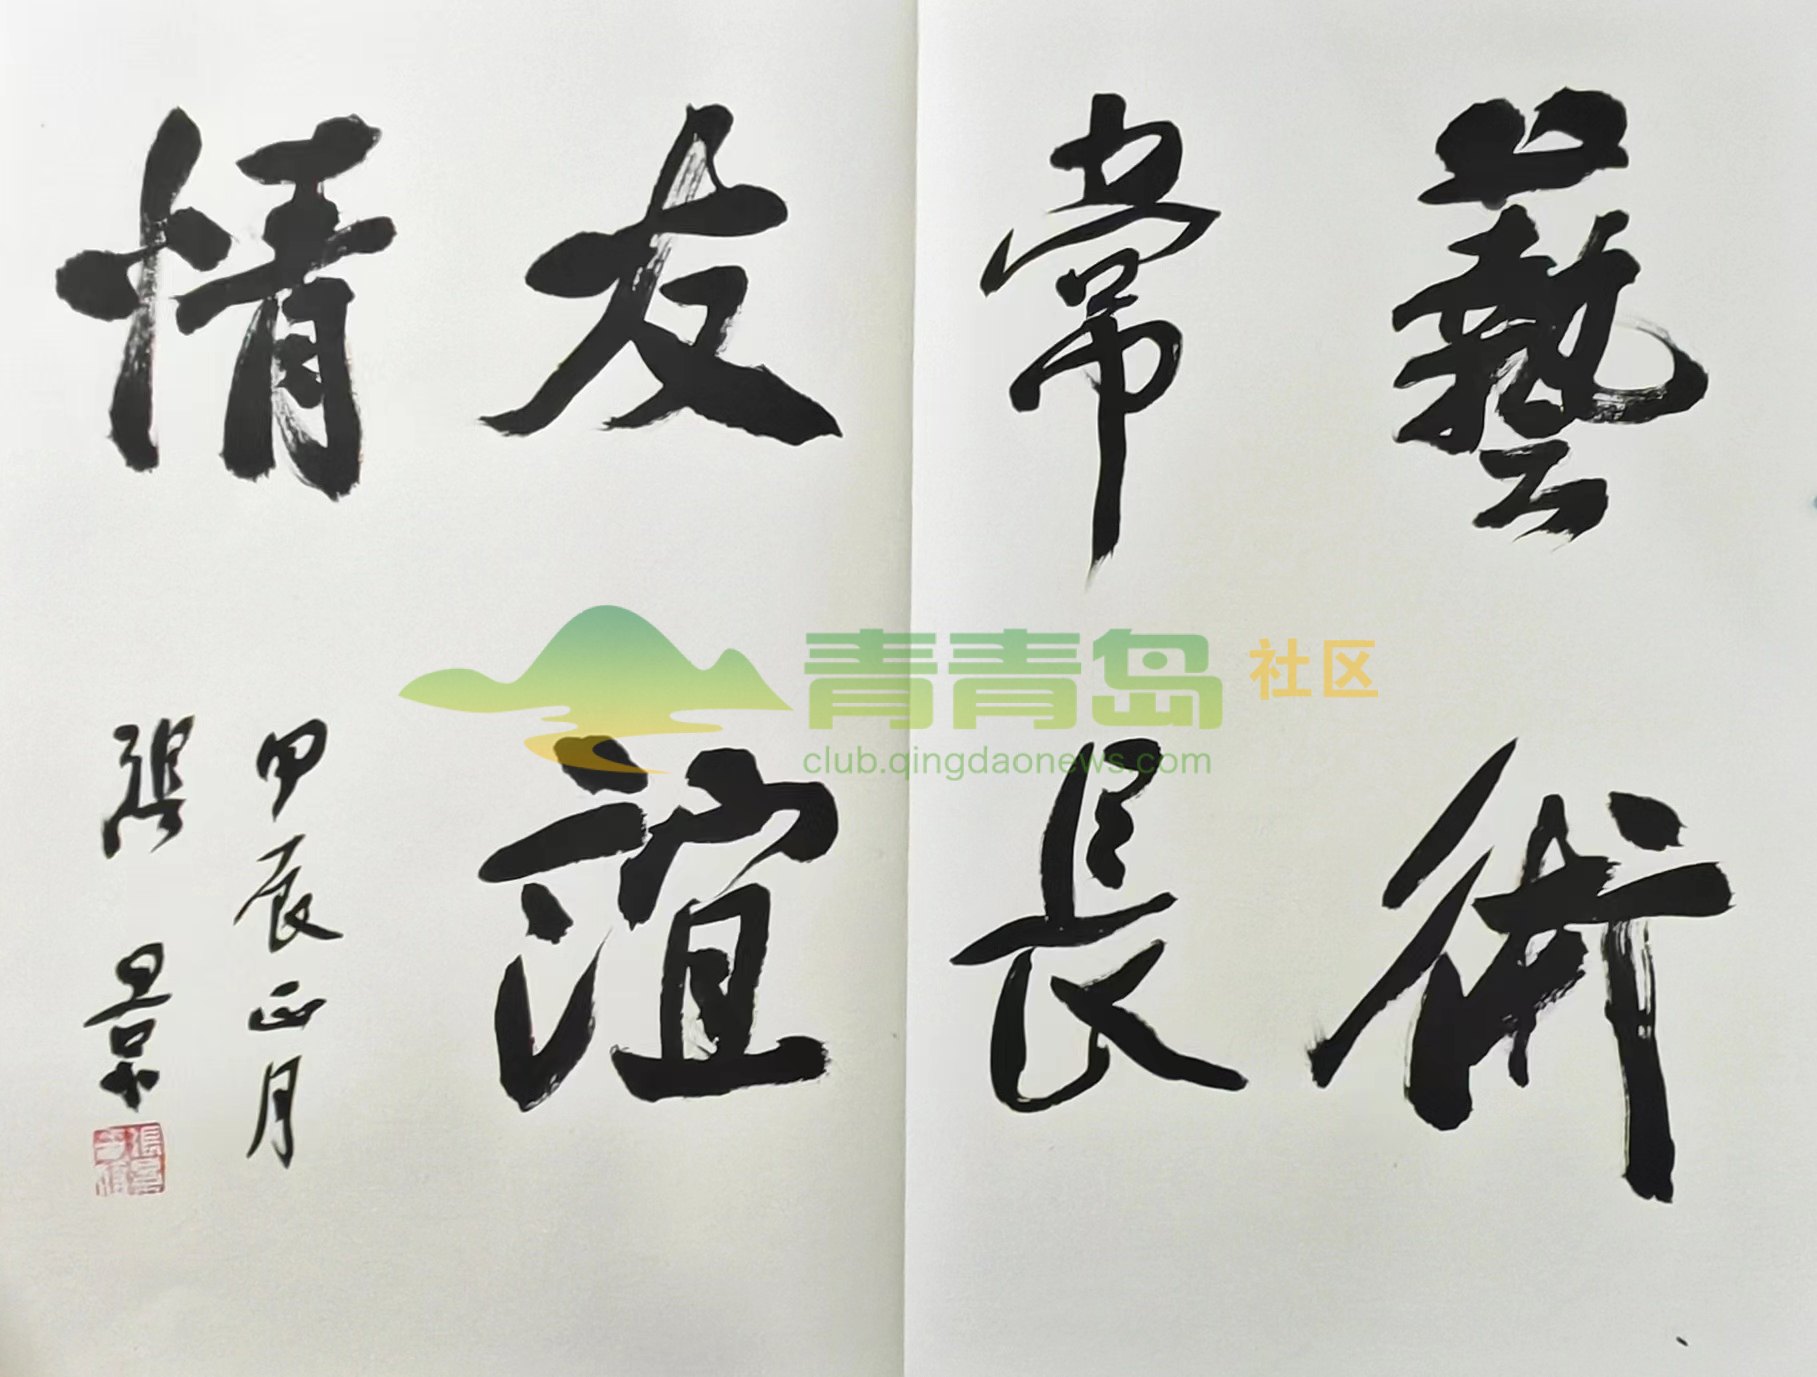 藝術
常長
友誼
情
甲辰正月
張景
青青岛社区
club.qingdaonews.com